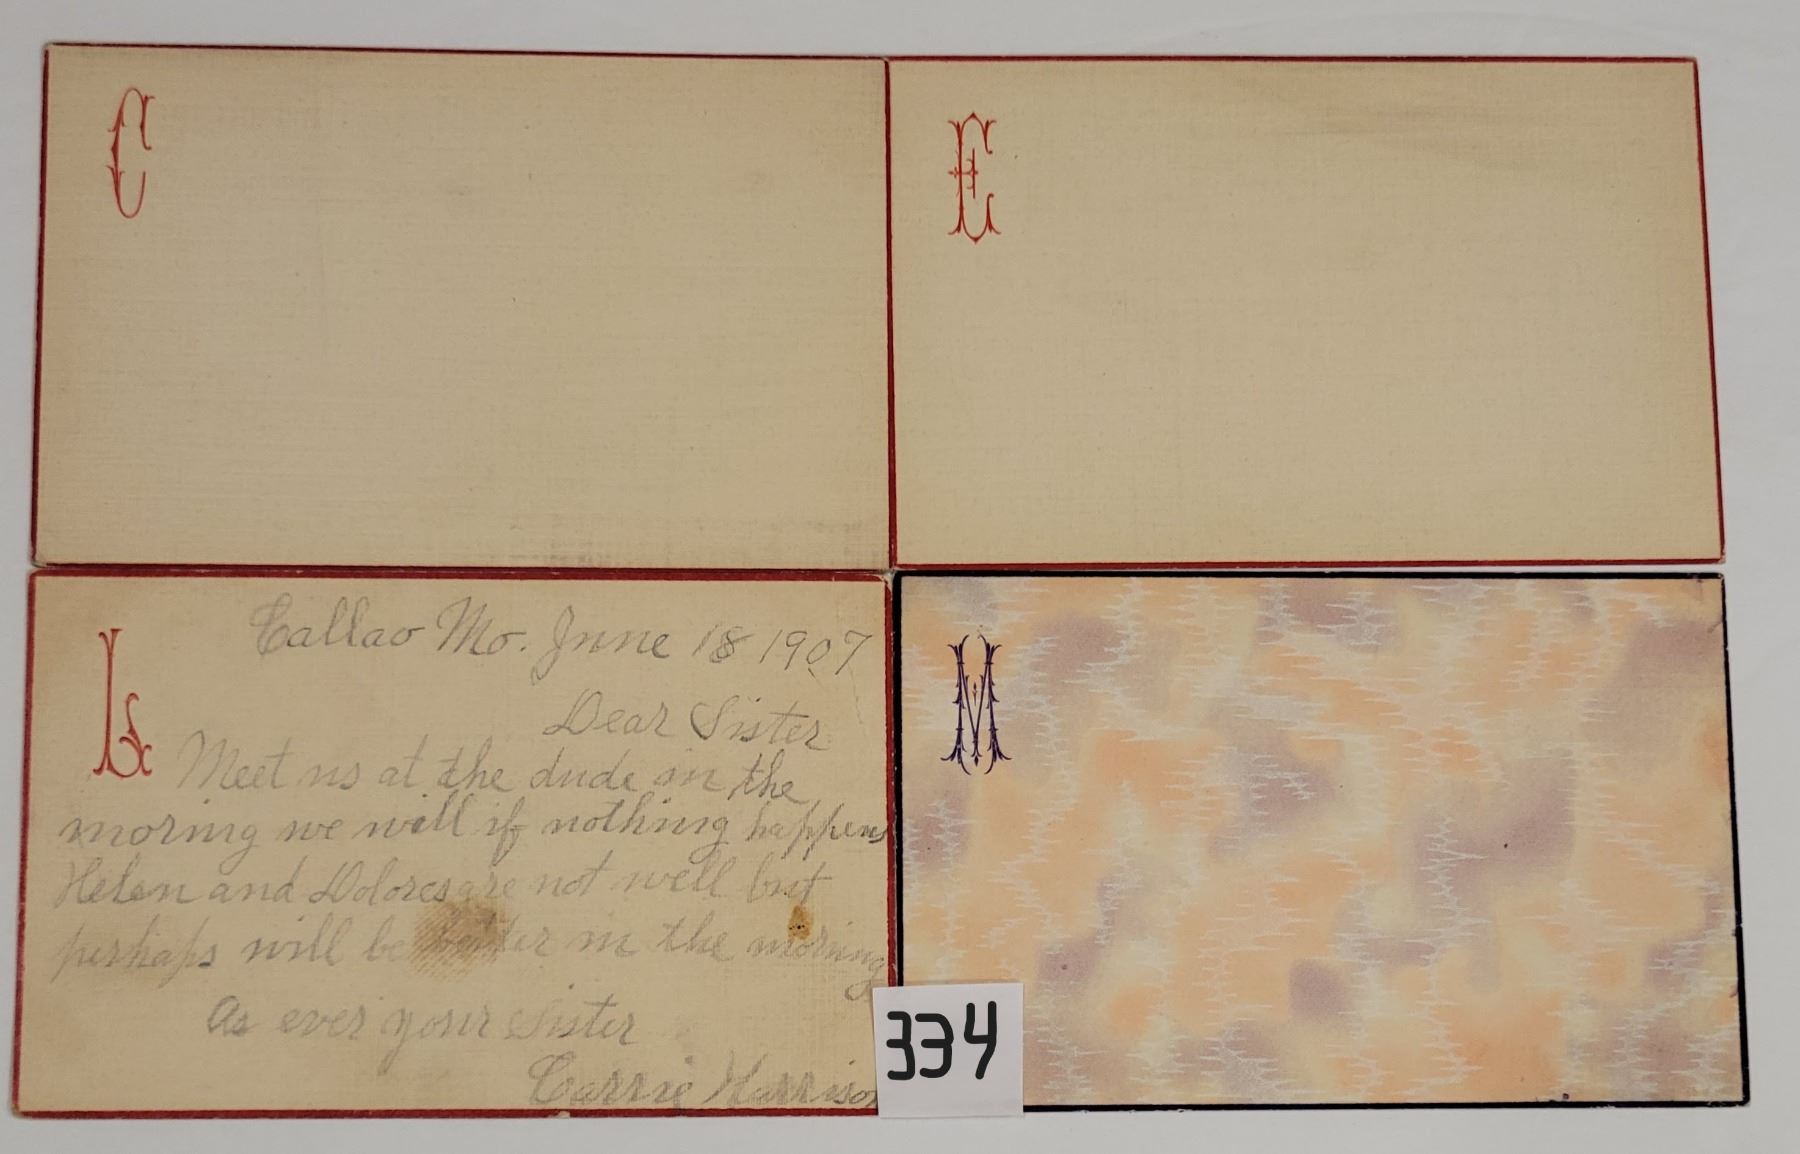 C
E
L
Callao Mo. June 18 1907
Dear Sister
Meet us at the dude in the
morning we will if nothing happens
Helen and Dolores are not well but
perhaps will be better in the morning
As ever your Sister
Carrie Harrison
M
334